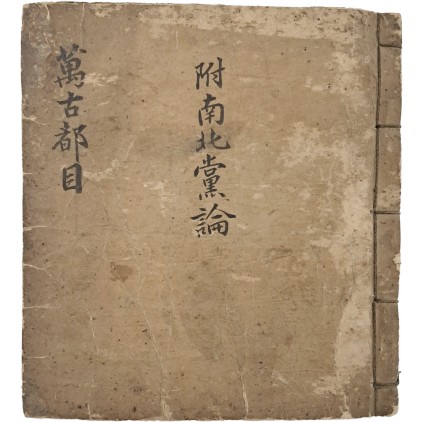 萬古都目
附南北黨論